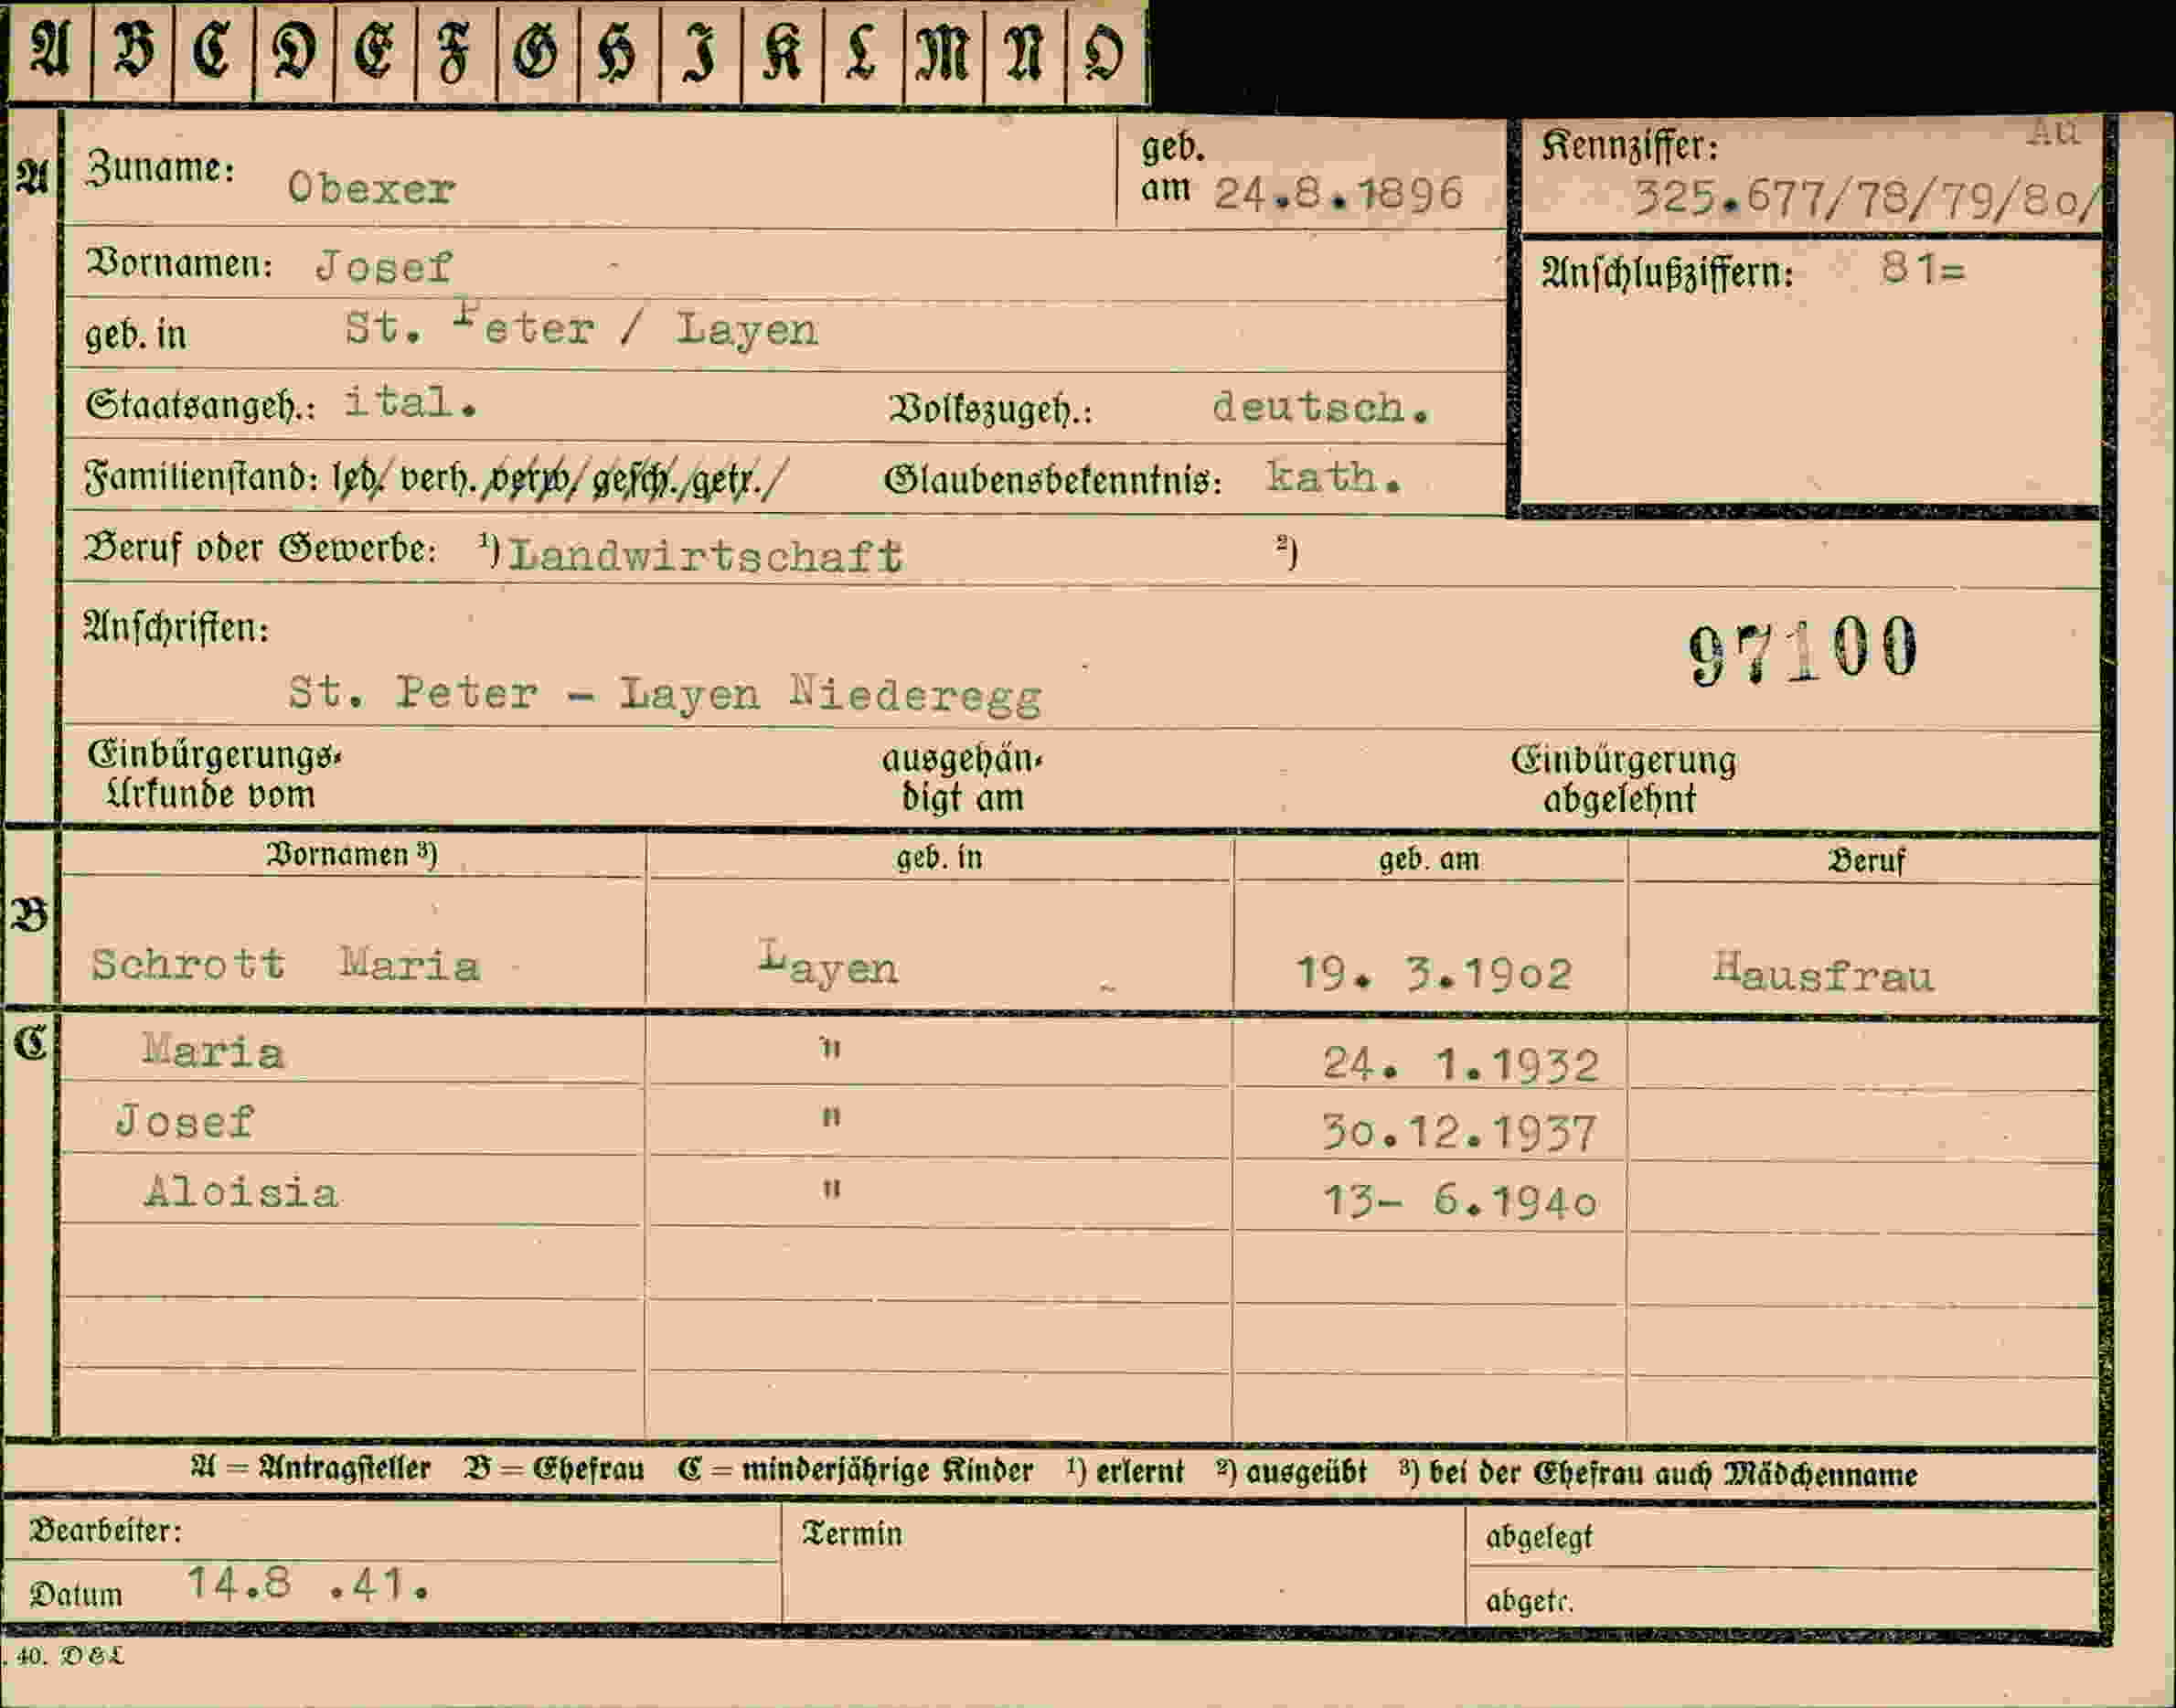 A B C D E F G H I K L M N O
Au
A Zuname: Obexer geb. am 24.8.1896 Kennziffer: 325.677/78/79/80/
Vornamen: Josef Anschlußziffern: 81=
geb. in St. Peter / Layen
Staatsangeh.: ital. Volkszugeh.: deutsch.
Familienstand: led./ verh. /verw/ gesch./getr./ Glaubensbekenntnis: kath.
Beruf oder Gewerbe: ¹) Landwirtschaft ²)
Anschriften: 97100
St. Peter - Layen Niederegg
Einbürgerungs- ausgehän- Einbürgerung
Urkunde vom digt am abgelehnt
Vornamen ³) geb. in geb. am Beruf
B
Schrott Maria Layen 19. 3.1902 Hausfrau
C Maria " 24. 1.1932
Josef " 30.12.1937
Aloisia " 13- 6.1940
A = Antragsteller B = Ehefrau C = minderjährige Kinder ¹) erlernt ²) ausgeübt ³) bei der Ehefrau auch Mädchenname
Bearbeiter: Termin abgelegt
Datum 14.8 .41. abgetr.
. 40. D & L